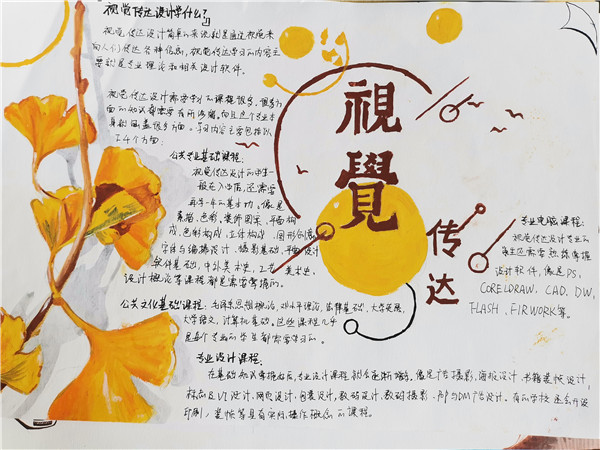 视觉传达设计学什么？
视觉传达设计简单的来说就是通过视觉来
向人们传达各种信息，视觉传达学习的内容主
要就是专业理论和相关设计软件。
视觉传达设计需要学习的课程很多，很多方
面的知识都需要有所涉猎。而且这个专业本
身就涵盖很多方面。学习内容主要包括以
下4个方面：
公共专业基础课程：
视觉传达设计的学生一
般在入学后，还需要
再学一年的基本功。像是
素描，色彩，装饰图案，平面构
成，色彩构成，立体构成，图形创意
字体与编排设计，摄影基础，平面设计
软件基础，中外美术史，工艺美术史，
设计概论等课程都是需要掌握的。
公共文化基础课程：毛泽东思想概论，邓小平理论，法律基础，大学英语，
大学语文，计算机基础。这些课程几乎
是每个专业的学生都需要学习的。
专业设计课程：
在基础知识掌握之后，专业设计课程就会逐渐增多，像是广告摄影，海报设计，书籍装帧设计，
标志及VI设计，网页设计，包装设计，数码设计，数码摄影，邮与DM广告设计。有的学校还会开设
印刷，装帧等具有实际操作概念的课程。
視覺
传达
专业电脑课程：
视觉传达设计专业的
学生还需要熟练掌握
设计软件，像是PS，
CORELDRAW，CAD，DW，
FLASH，FIRWORK等。